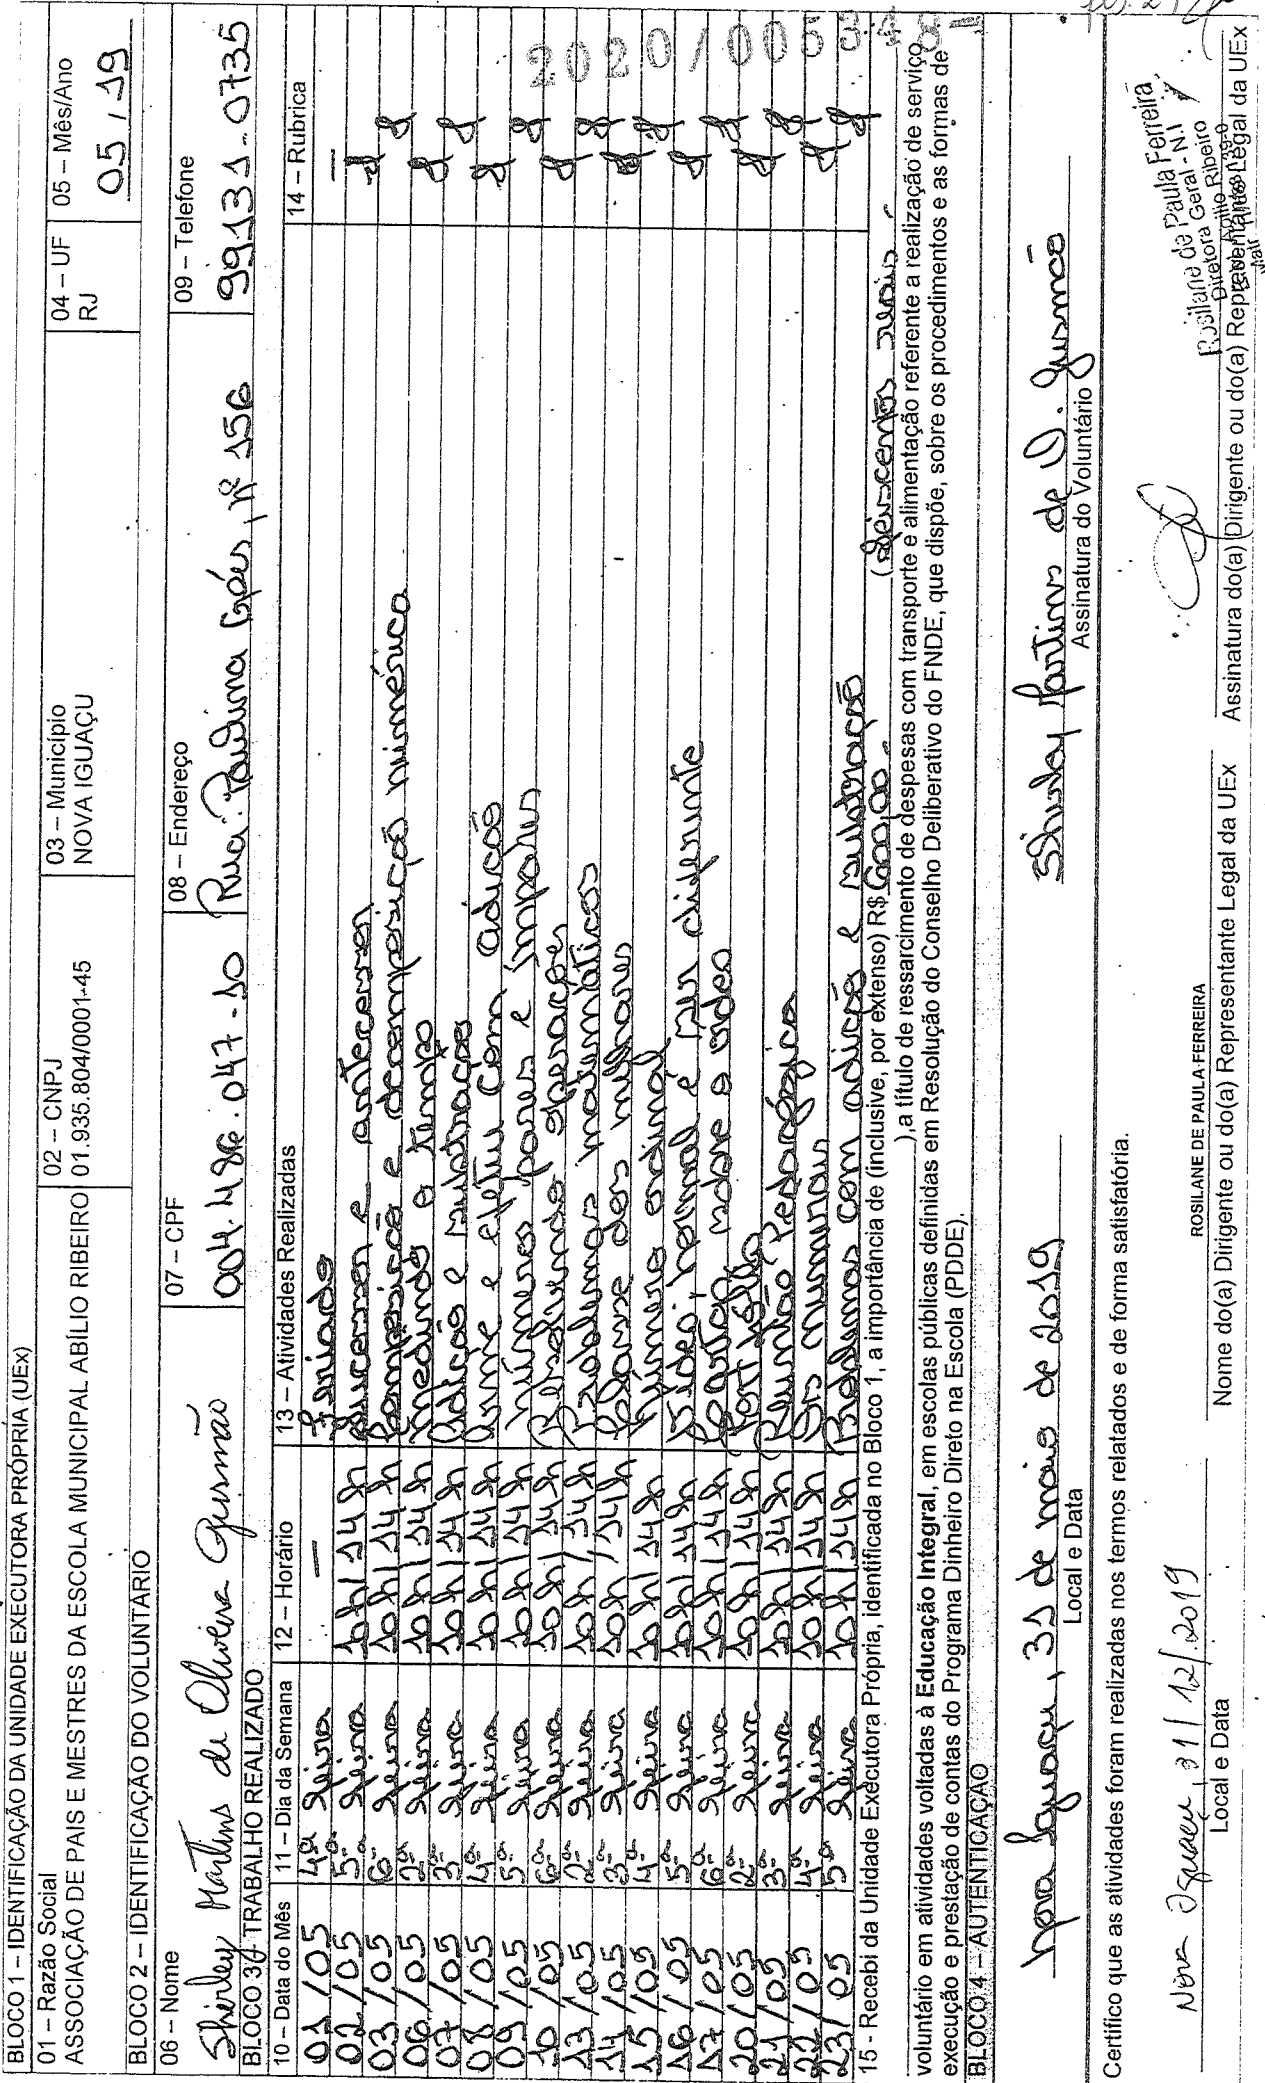 2020/005348
BLOCO 1 – IDENTIFICAÇÃO DA UNIDADE EXECUTORA PRÓPRIA (UEx)
01 – Razão Social
ASSOCIAÇÃO DE PAIS E MESTRES DA ESCOLA MUNICIPAL ABÍLIO RIBEIRO
02 – CNPJ
01.935.804/0001-45
03 – Município
NOVA IGUAÇU
04 – UF
RJ
05 – Mês/Ano
05 / 19
BLOCO 2 – IDENTIFICAÇÃO DO VOLUNTÁRIO
06 – Nome
Shirley Martins de Oliveira Gusmão
07 – CPF
004.486.047-10
08 – Endereço
Rua: Paulina Góes, nº 156
09 – Telefone
99131-0735
BLOCO 3 – TRABALHO REALIZADO
10 – Data do Mês 11 – Dia da Semana 12 – Horário 13 – Atividades Realizadas 14 – Rubrica
01/05 4ª feira — Feriado —
02/05 5ª feira 10h/14h Sucessor e antecessor
03/05 6ª feira 10h/14h Composição e decomposição numérica
06/05 2ª feira 10h/14h Medindo o tempo
07/05 3ª feira 10h/14h Adição e subtração
08/05 4ª feira 10h/14h Arme e efetue com adição
09/05 5ª feira 10h/14h Números pares e ímpares
10/05 6ª feira 10h/14h Resolvendo operações
13/05 2ª feira 10h/14h Problemas matemáticos
14/05 3ª feira 10h/14h Classe dos milhares
15/05 4ª feira 10h/14h Número ordinal
16/05 5ª feira 10h/14h Vídeo, normal é ser diferente
17/05 6ª feira 10h/14h Cartaz sobre o vídeo
20/05 2ª feira 10h/14h
21/05 3ª feira 10h/14h Reunião Pedagógica
22/05 4ª feira 10h/14h Os numerais
23/05 5ª feira 10h/14h Problemas com adição e subtração
15 - Recebi da Unidade Executora Própria, identificada no Bloco 1, a importância de (inclusive, por extenso) R$ 600,00 - (seiscentos reais -
), a título de ressarcimento de despesas com transporte e alimentação referente a realização de serviço
voluntário em atividades voltadas à Educação Integral, em escolas públicas definidas em Resolução do Conselho Deliberativo do FNDE, que dispõe, sobre os procedimentos e as formas de
execução e prestação de contas do Programa Dinheiro Direto na Escola (PDDE).
BLOCO 4 – AUTENTICAÇÃO
Nova Iguaçu, 31 de maio de 2019
Local e Data
Shirley Martins de O. Gusmão
Assinatura do Voluntário
Certifico que as atividades foram realizadas nos termos relatados e de forma satisfatória.
Nova Iguaçu, 31/12/2019
Local e Data
ROSILANE DE PAULA FERREIRA
Nome do(a) Dirigente ou do(a) Representante Legal da UEx
Rosilane de Paula Ferreira
Diretora Geral - N.I
Assinatura do(a) Dirigente ou do(a) Representante Legal da UEx